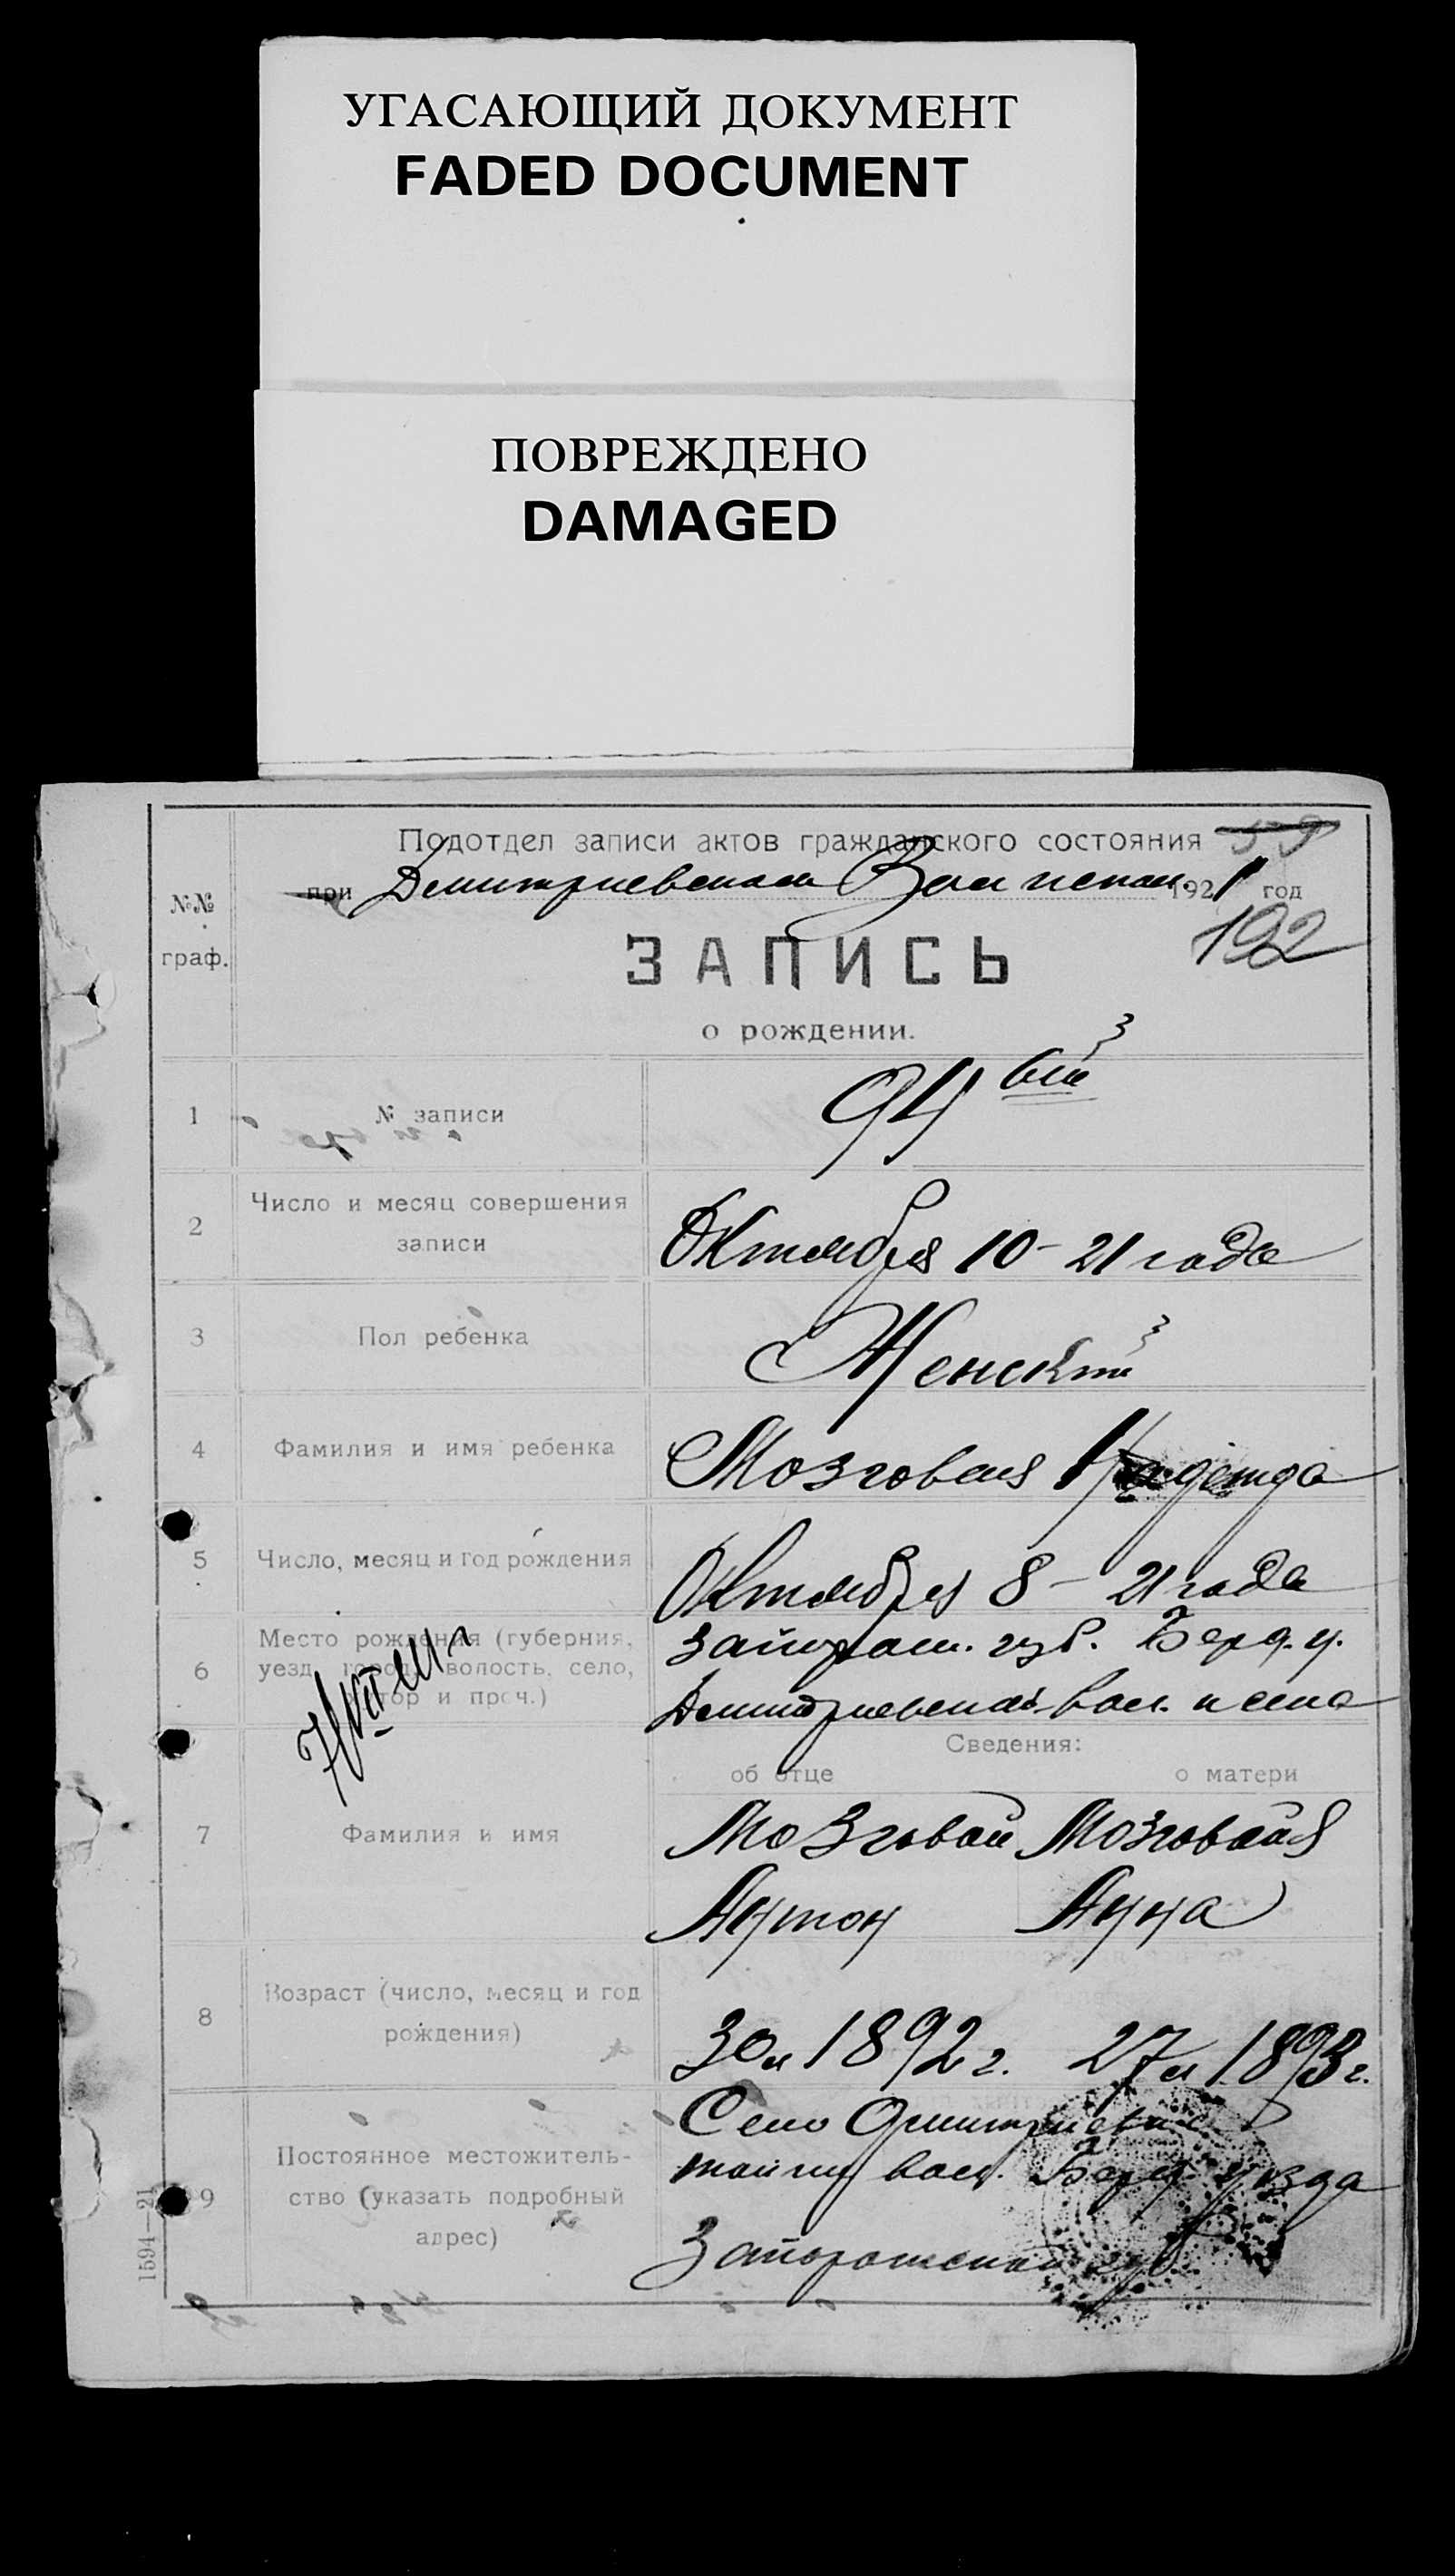 УГАСАЮЩИЙ ДОКУМЕНТ
FADED DOCUMENT
ПОВРЕЖДЕНО
DAMAGED
Подотдел записи актов гражданского состояния 59
при Дмитриевском Вол исполк. 1921 год
192
№№ граф.
ЗАПИСЬ
о рождении.
1 № записи 94 вый
2 Число и месяц совершения записи
Октября 10 – 21 года
3 Пол ребенка Женский
4 Фамилия и имя ребенка Мозговая Надежда
5 Число, месяц и год рождения Октября 8 – 21 года
6 Место рождения (губерния, уезд, город, волость, село, хутор и проч.)
Запорож. губ. Берд. у.
Дмитриевской вол. и села
Сведения:
об отце о матери
7 Фамилия и имя
Мозговой Мозговая
Антон Анна
8 Возраст (число, месяц и год рождения)
30 л 1892 г. 27 л 1893 г.
9 Постоянное местожительство (указать подробный адрес)
Село
вол. Берд уезда
Запорожской губ
1594—21